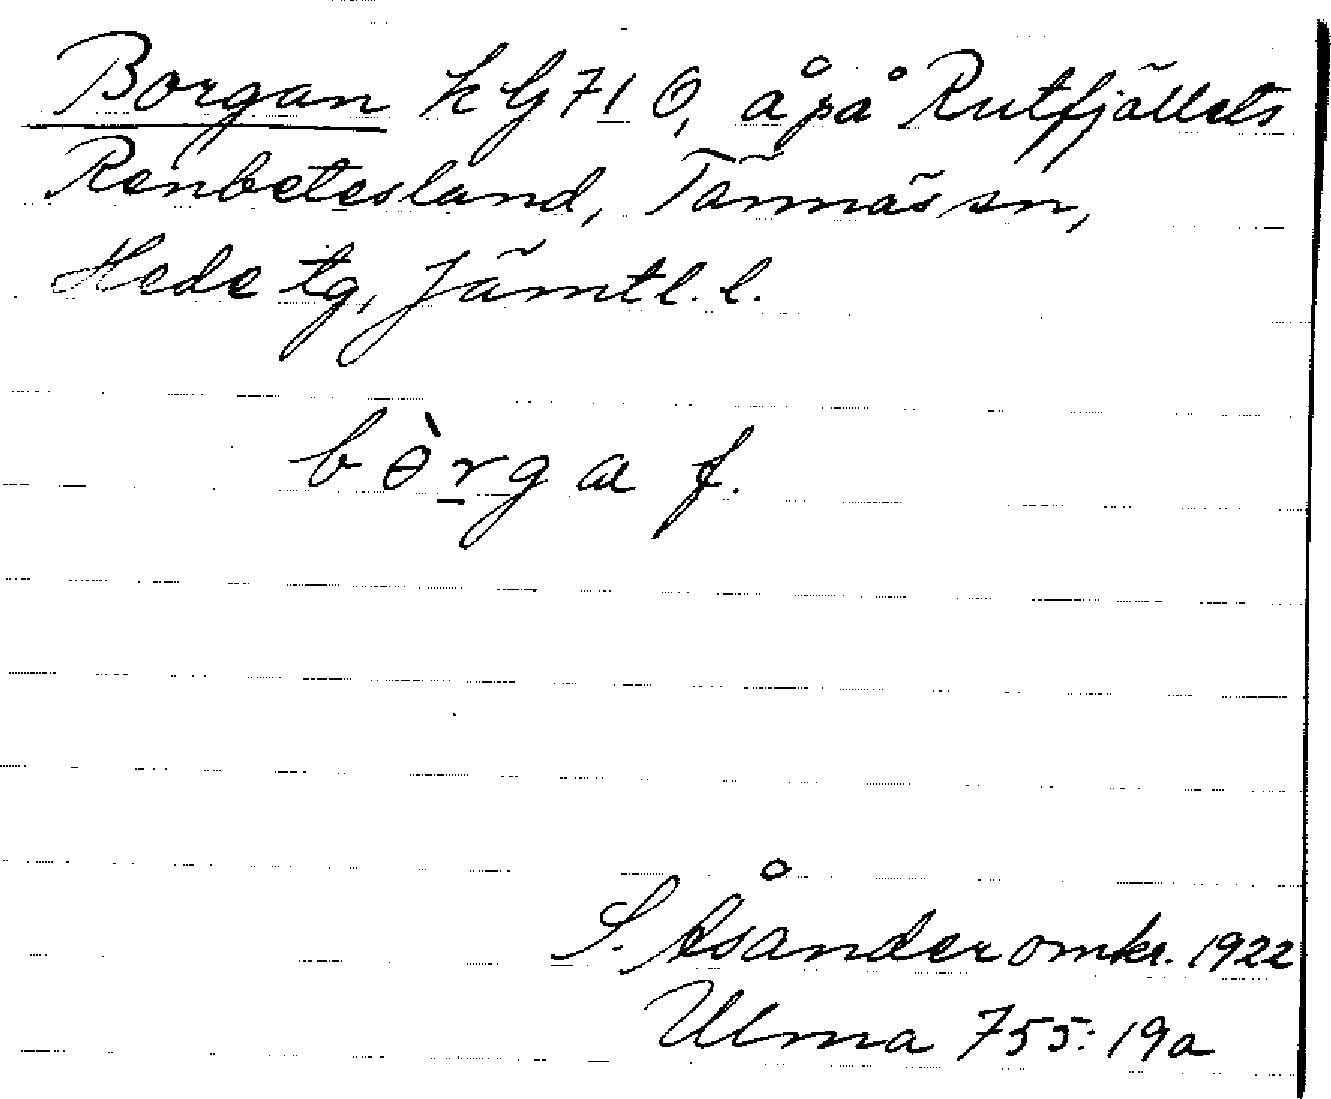 Borgan kG 71 O, å på Rutfjällets
Renbetesland, Tännäs sn,
Hede tg, Jämtl. l.
bòrga f.
S. Åsander omkr. 1922
Ulma 755:19a